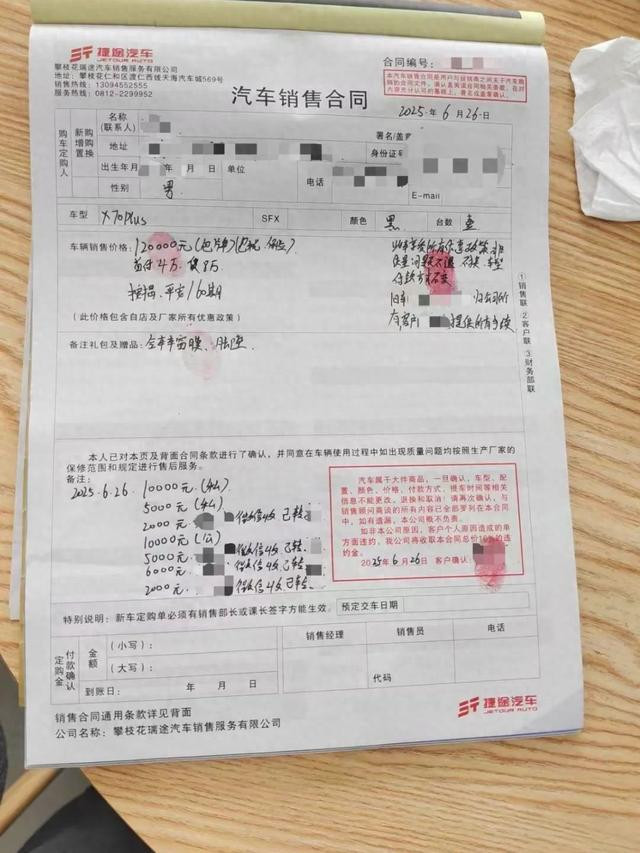 捷途汽车
JETOUR AUTO
攀枝花瑞途汽车销售服务有限公司
地址：攀枝花仁和区渡仁西线天海汽车城569号
销售热线：13094552555
服务热线：0812-2299952
合同编号：
汽车销售合同
2025年6月26日
购车定购人
新购 增购 置换
名称
(联系人)
署名/盖章
地址
身份证号
出生年月
年 月 日
单位
电话
性别
男
E-mail
车型
X70plus
SFX
颜色
黑
台数
壹
车辆销售价格：
120000元
首付4万
按揭、平安/60期
付款方式不变
旧车
归公司所
(此价格包含自店及厂家所有优惠政策)
提供所有手续
备注礼包及赠品：
全车车窗膜、脚垫
①销售联 ②客户联 ③财务部联
本人已对本页及背面合同条款进行了确认，并同意在车辆使用过程中如出现质量问题均按照生产厂家的
保修范围和规定进行售后服务。
备注：
2025.6.26 10000元(私)
5000元(私)
2000元 微信收 已转
10000元(公)
5000元 微信收 已转
6000元 微信收 已转
2000元 微信收 已转
汽车属于大件商品，一旦确认，车型、配
置、颜色、价格、付款方式、提车时间等相关
信息不能更改，退换和取消！请再次确认，与
销售顾问商谈的所有内容已全部罗列在本合同
中，如有遗漏，本公司概不负责。
如非本公司原因，客户个人原因造成的单
方面违约，我公司将收取本合同总价10%的违
约金。
2025年6月26日 客户确认：
特别说明：新车定购单必须有销售部长或课长签字方能生效。
预定交车日期
定购金
付款确认
金额
(小写)：
(大写)：
到账日： 年 月 日
销售经理
销售员
电话
代码
销售合同通用条款详见背面
公司名称：攀枝花瑞途汽车销售服务有限公司
捷途汽车
JETOUR AUTO